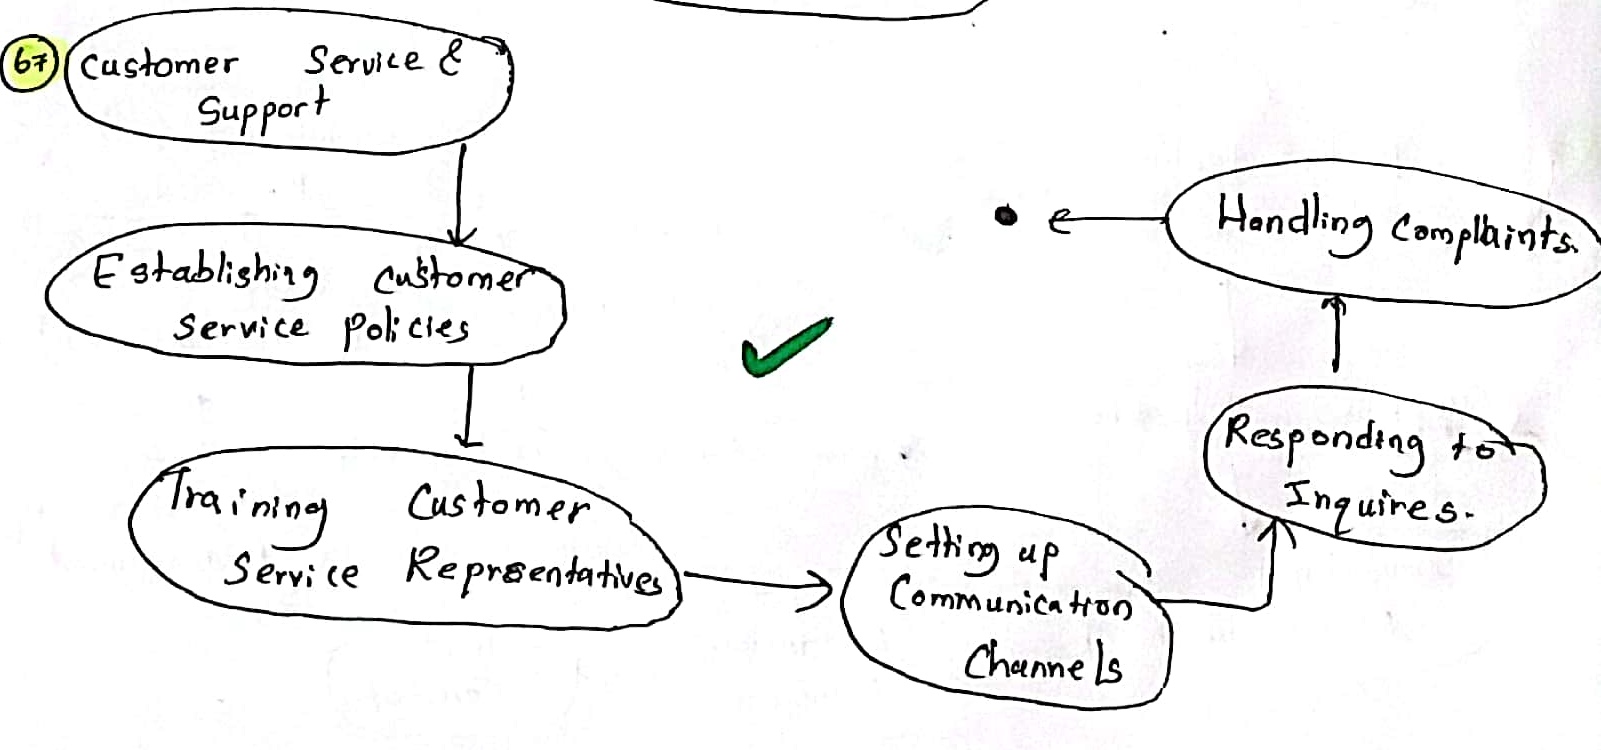 67
Customer Service &
Support
Establishing Customer
Service Policies
Training Customer
Service Representatives
Setting up
Communication
Channels
Responding to
Inquires.
Handling Complaints.